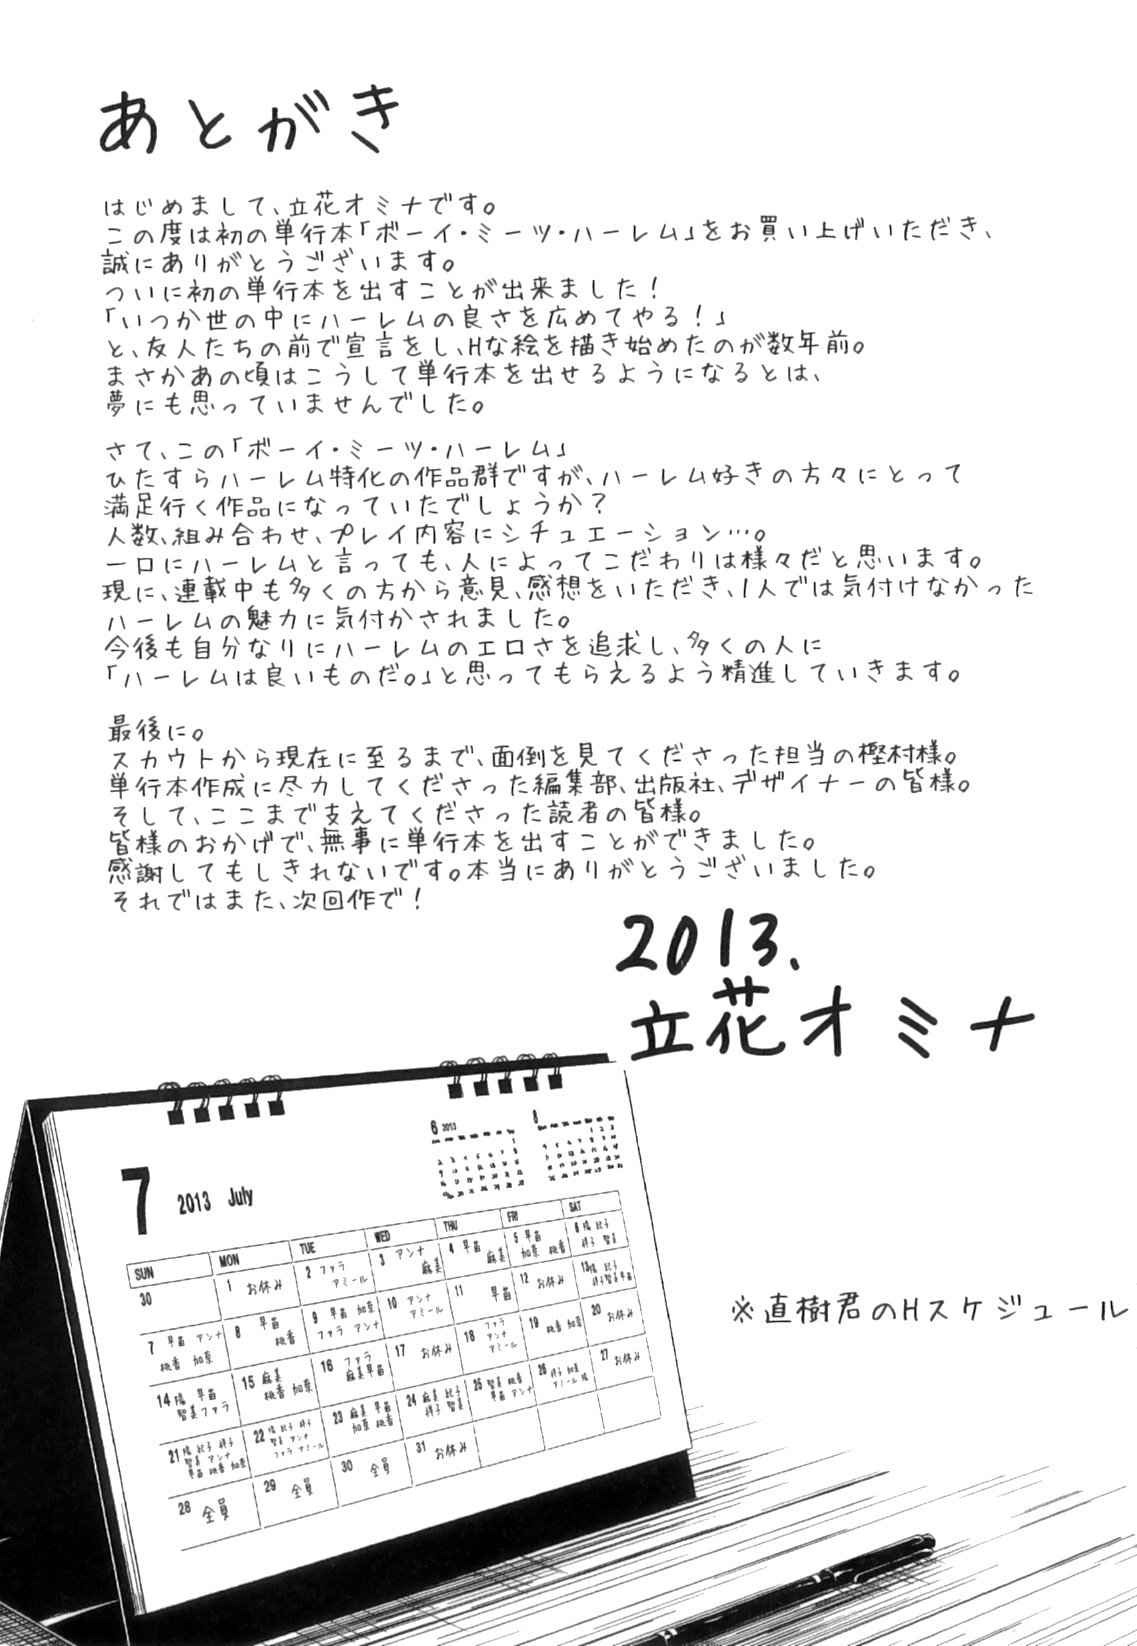 あとがき
はじめまして、立花オミナです。
この度は初の単行本「ボーイ・ミーツ・ハーレム」をお買い上げいただき、
誠にありがとうございます。
ついに初の単行本を出すことが出来ました！
「いつか世の中にハーレムの良さを広めてやる！」
と、友人たちの前で宣言をし、Hな絵を描き始めたのが数年前。
まさかあの頃はこうして単行本を出せるようになるとは、
夢にも思っていませんでした。
さて、この「ボーイ・ミーツ・ハーレム」
ひたすらハーレム特化の作品群ですが、ハーレム好きの方々にとって
満足行く作品になっていたでしょうか？
人数、組み合わせ、プレイ内容にシチュエーション…。
一口にハーレムと言っても、人によってこだわりは様々だと思います。
現に、連載中も多くの方から意見、感想をいただき、1人では気付けなかった
ハーレムの魅力に気付かされました。
今後も自分なりにハーレムのエロさを追求し、多くの人に
「ハーレムは良いものだ。」と思ってもらえるよう精進していきます。
最後に。
スカウトから現在に至るまで、面倒を見てくださった担当の樫村様。
単行本作成に尽力してくださった編集部、出版社、デザイナーの皆様。
そして、ここまで支えてくださった読者の皆様。
皆様のおかげで、無事に単行本を出すことができました。
感謝してもしきれないです。本当にありがとうございました。
それではまた、次回作で！
2013.
立花オミナ
6 2013
8
7 2013 July
SUN MON TUE WED THU FRI SAT
30 1 お休み 2 ファラ アミール 3 アンナ 麻美 4 早苗 麻美 5 早苗 加奈 桃香 6 陽 妃子 祥子 智美
7 早苗 アンナ 桃香 加奈 8 早苗 桃香 9 早苗 加奈 ファラ アンナ 10 アンナ アミール 11 早苗 12 お休み 13 陽 妃子 祥子 智美 早苗
14 陽 早苗 智美 ファラ 15 麻美 桃香 加奈 16 ファラ 麻美 早苗 17 お休み 18 ファラ アンナ アミール 19 桃香 加奈 20 お休み
21 陽 妃子 祥子 智美 アンナ 早苗 桃香 加奈 22 陽 妃子 祥子 智美 アンナ ファラ アミール 23 麻美 早苗 加奈 桃香 24 麻美 妃子 祥子 智美 25 智美 桃香 早苗 アンナ 26 祥子 加奈 アミール 陽 27 お休み
28 全員 29 全員 30 全員 31 お休み
※直樹君のHスケジュール